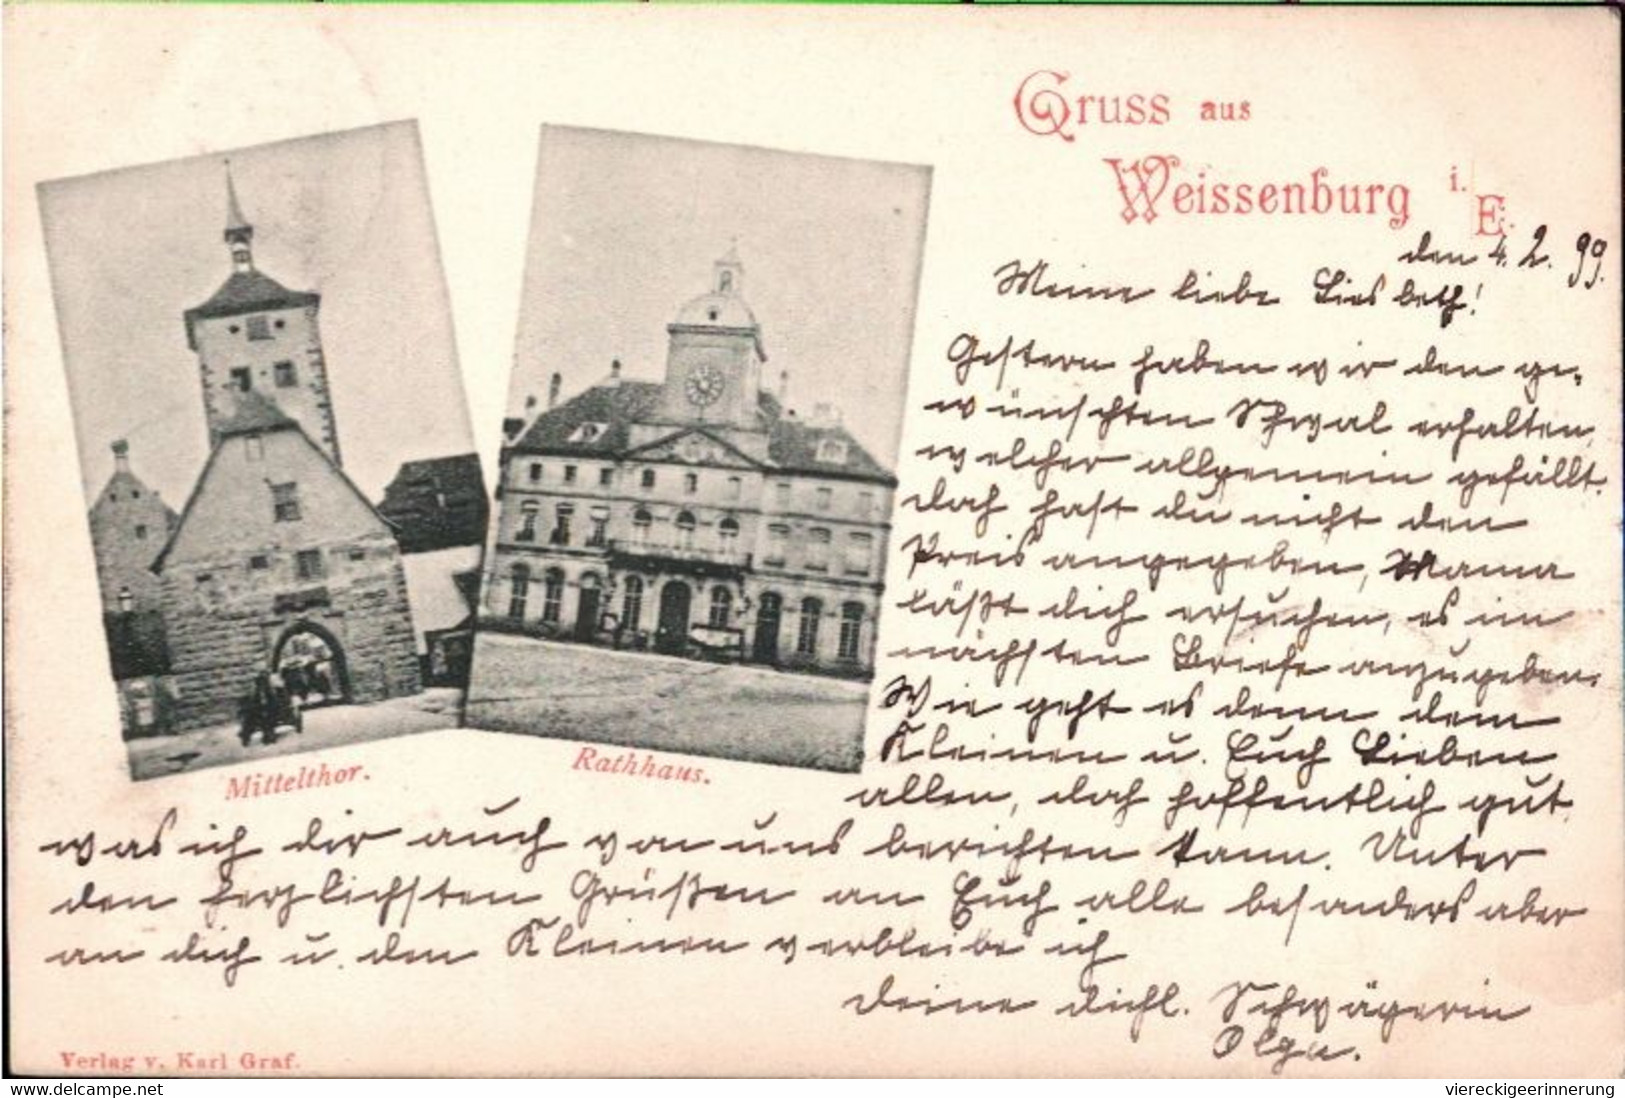 Gruss aus
Weissenburg i. E.
den 4. 2. 99.
Meine liebe Liesbeth!
Gestern haben wir den ge-
wünschten Schwal erhalten,
welcher allgemein gefällt.
doch hast du nicht den
Preis angegeben, Mama
läßt dich ersuchen, es im
nächsten Briefe anzugeben.
Wie geht es denn dem
Kleinen u. Euch Lieben
allen, doch hoffentlich gut
was ich dir auch von uns berichten kann. Unter
den herzlichsten Grüßen an Euch alle besonders aber
an dich u. den Kleinen verbleibe ich
deine dichl. Schwägerin
Olga.
Mittelthor.
Rathhaus.
Verlag v. Karl Graf.
www.delcampe.net
viereckigeerinnerung